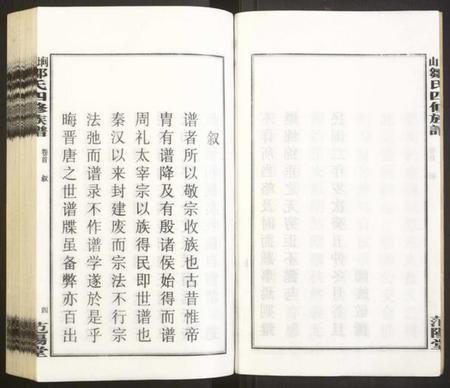 叙
谱者所以敬宗收族也古昔惟帝
胄有谱降及有殷诸侯始得而谱
周礼太宰宗以族得民即世谱也
秦汉以来封建废而宗法不行宗
法弛而谱录不作谱学遂於是乎
晦晋唐之世谱牒虽备弊亦百出
邹氏四修族谱
卷首
叙
四
范陽堂
山
鄒氏四修族譜
范陽堂